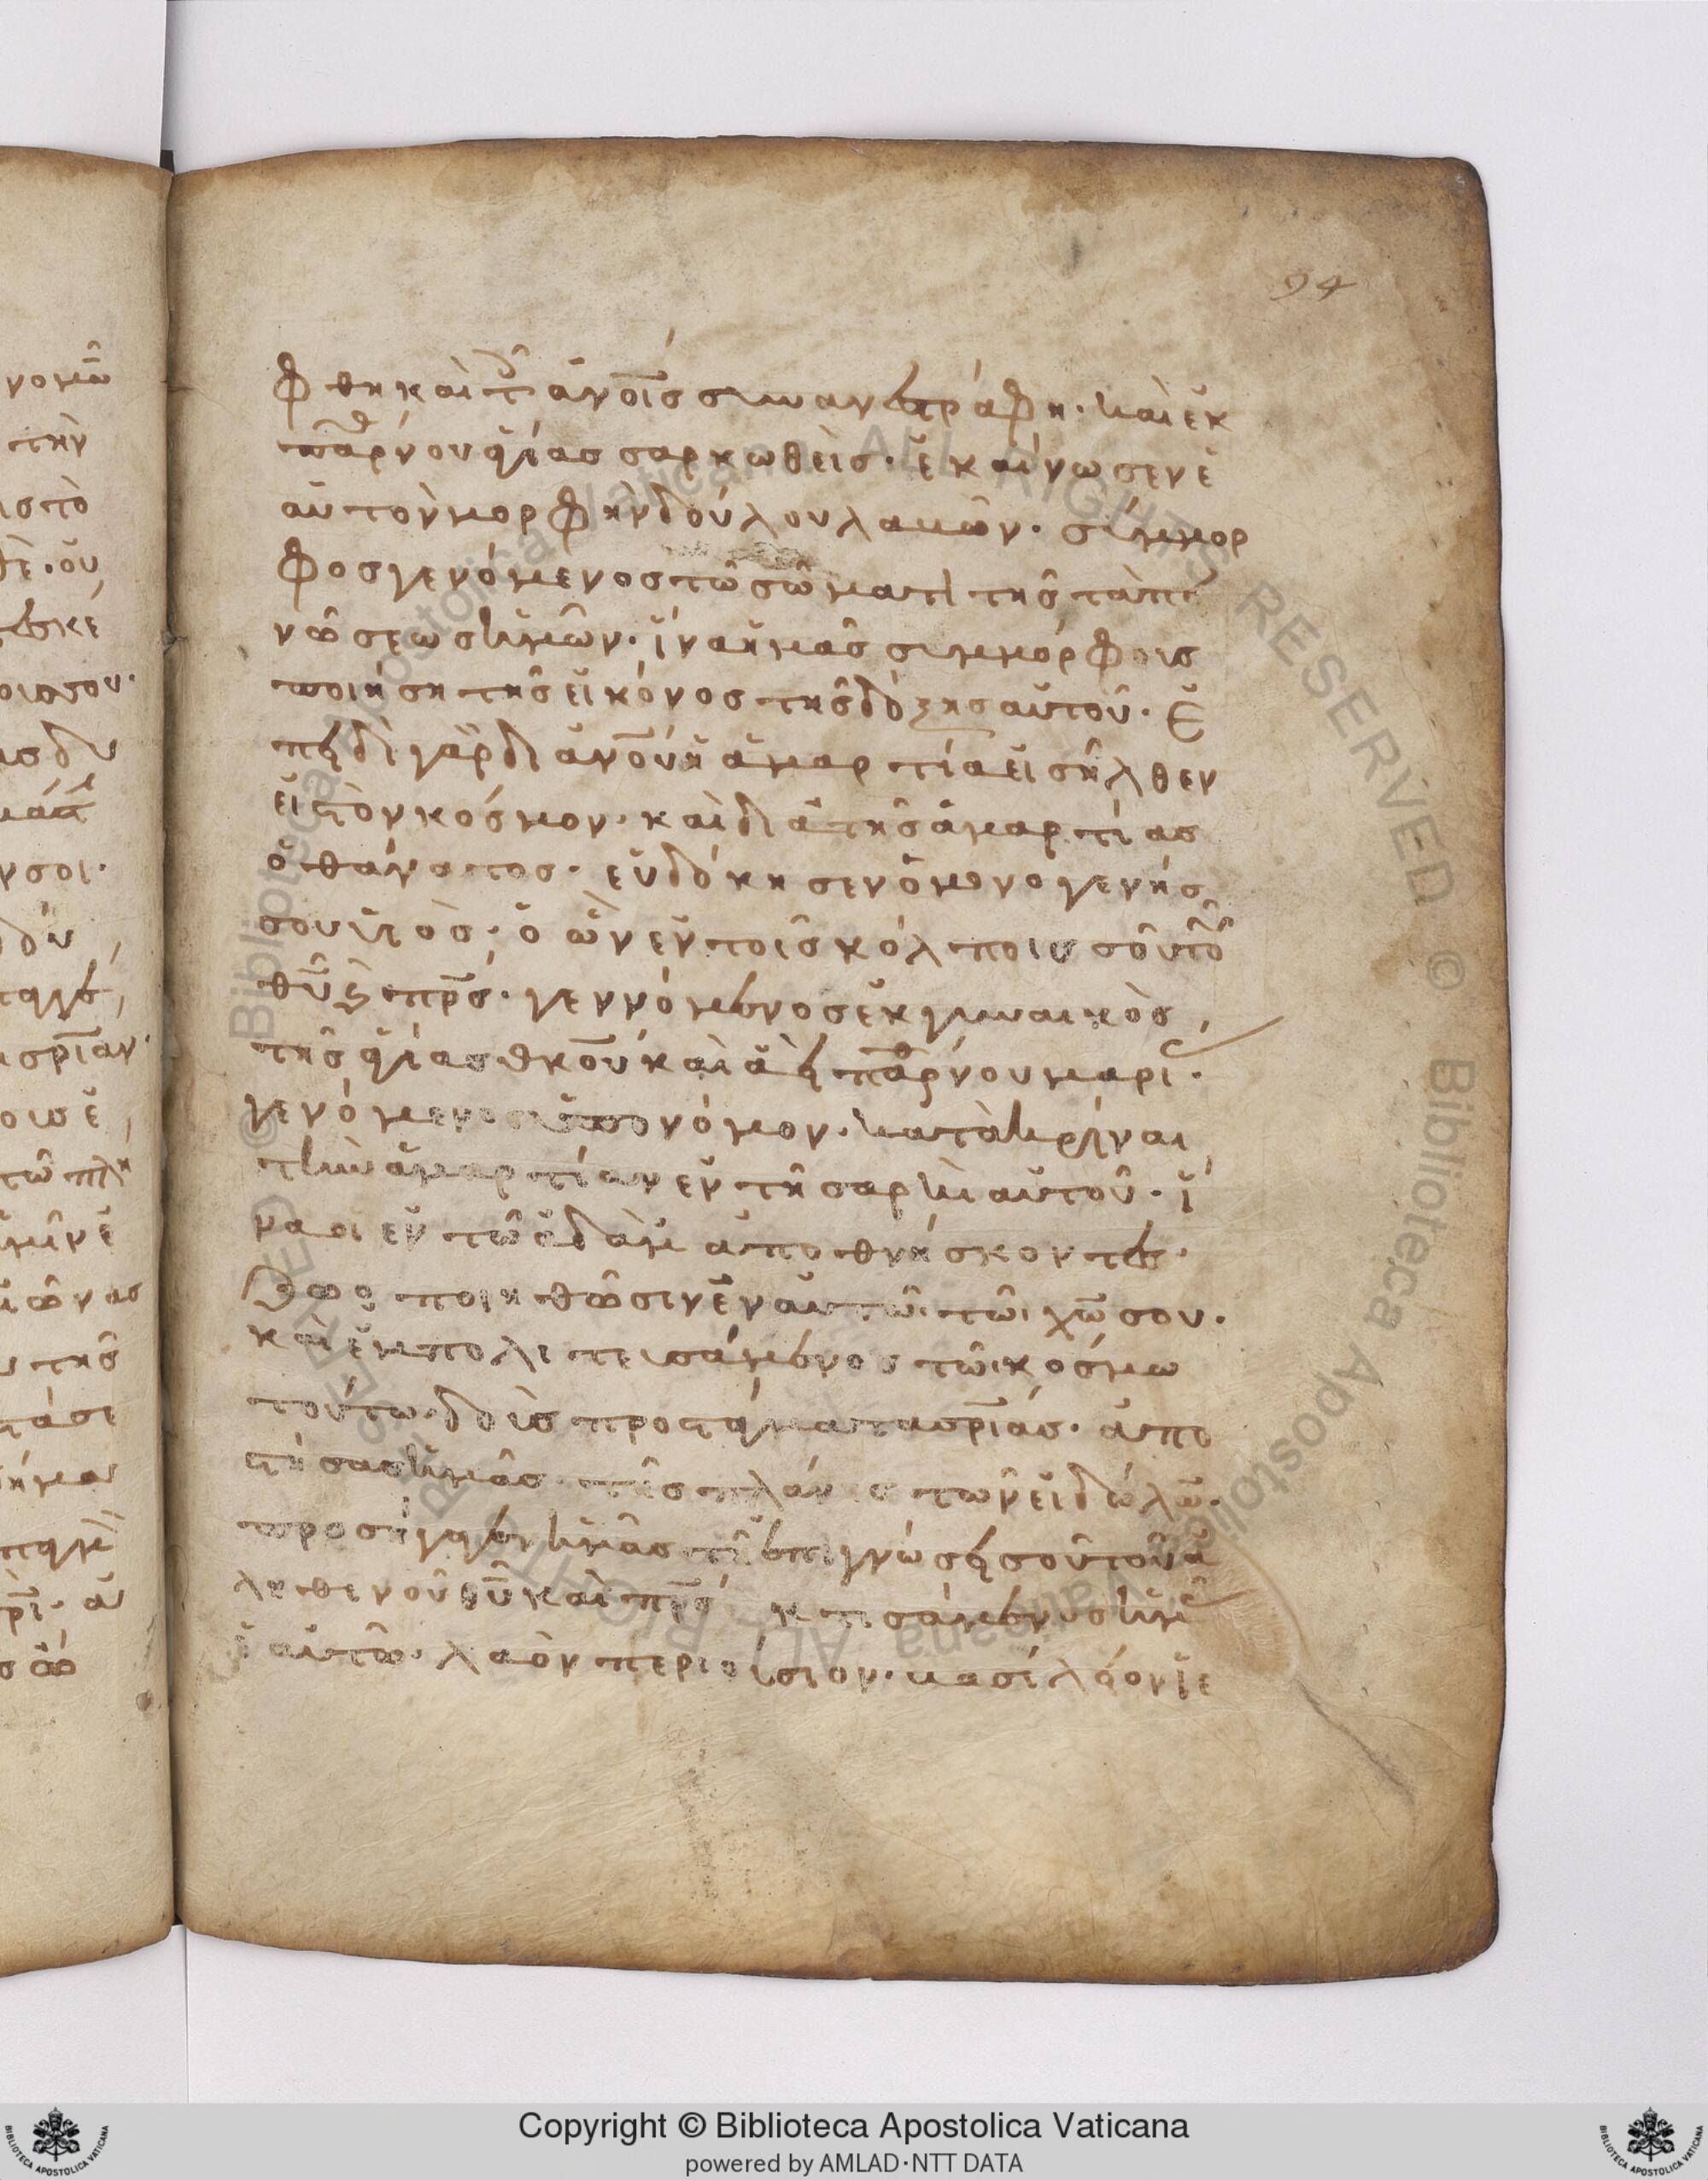 94
φθη καὶ τοῖς ἀν̅οις συναναστράφη· καὶ ἐκ
παρθένου ἁγίας σαρκωθεὶς· ἐκαίνωσεν ἑ
αὐτὸν μορφὴν δούλου λαβῶν· σύμμορ
φος γενόμενος τῶ σῶματι τῆς ταπει
νῶσεως ἡμῶν· ἵνα ἡμᾶς συμμόρφοις
ποιήση τῆς εἰκόνος τῆς δόξης αὐτοῦ· Ἐ
πειδὶ γὰρ δι ἀν̅ου ἡ ἁμαρτία εἰσῆλθεν
εἰς τὸν κόσμον· καὶ διὰ τῆς ἁμαρτίας
ὁ θάνατος· εὐδόκησεν ὁ μονογενής
σου υἱὸς· ὁ ὢν ἐν τοῖς κόλποις σοῦ τοῦ
θ̅υ καὶ π̅ρς· γεννόμενος ἐκ γυναικὸς
τῆς ἁγίας θ̅κου καὶ ἀεὶ παρθένου μαρί·
γενόμενος ὑπὸ νόμον· κατακρίναι
τὴν ἁμαρτίαν ἐν τῆ σαρκὶ αὐτοῦ· ἵ
να οι ἐν τῶ ἀδὰμ ἀποθνήσκοντες·
ζωοποιηθῶσιν ἐν αὐτῶ· τῶι χ̅ω σου·
καὶ ἐμπολιτευσάμενος τῶι κόσμω
τούτω· δοὺς προστάγματα σρ̅ιας· ἀπο
στήσας ἡμᾶς τῆς πλάνης τῶν εἰδώλω̅·
προσήγαγεν ἡμᾶς τῆ ἐπιγνώσει σοῦ τοῦ ἀ
ληθινοῦ θ̅υ καὶ π̅ρς κτισάμενος ἡμᾶς
ἑαυτῶ· λαὸν περιούσιον· βασίλειον ἱε
Copyright © Biblioteca Apostolica Vaticana
powered by AMLAD·NTT DATA